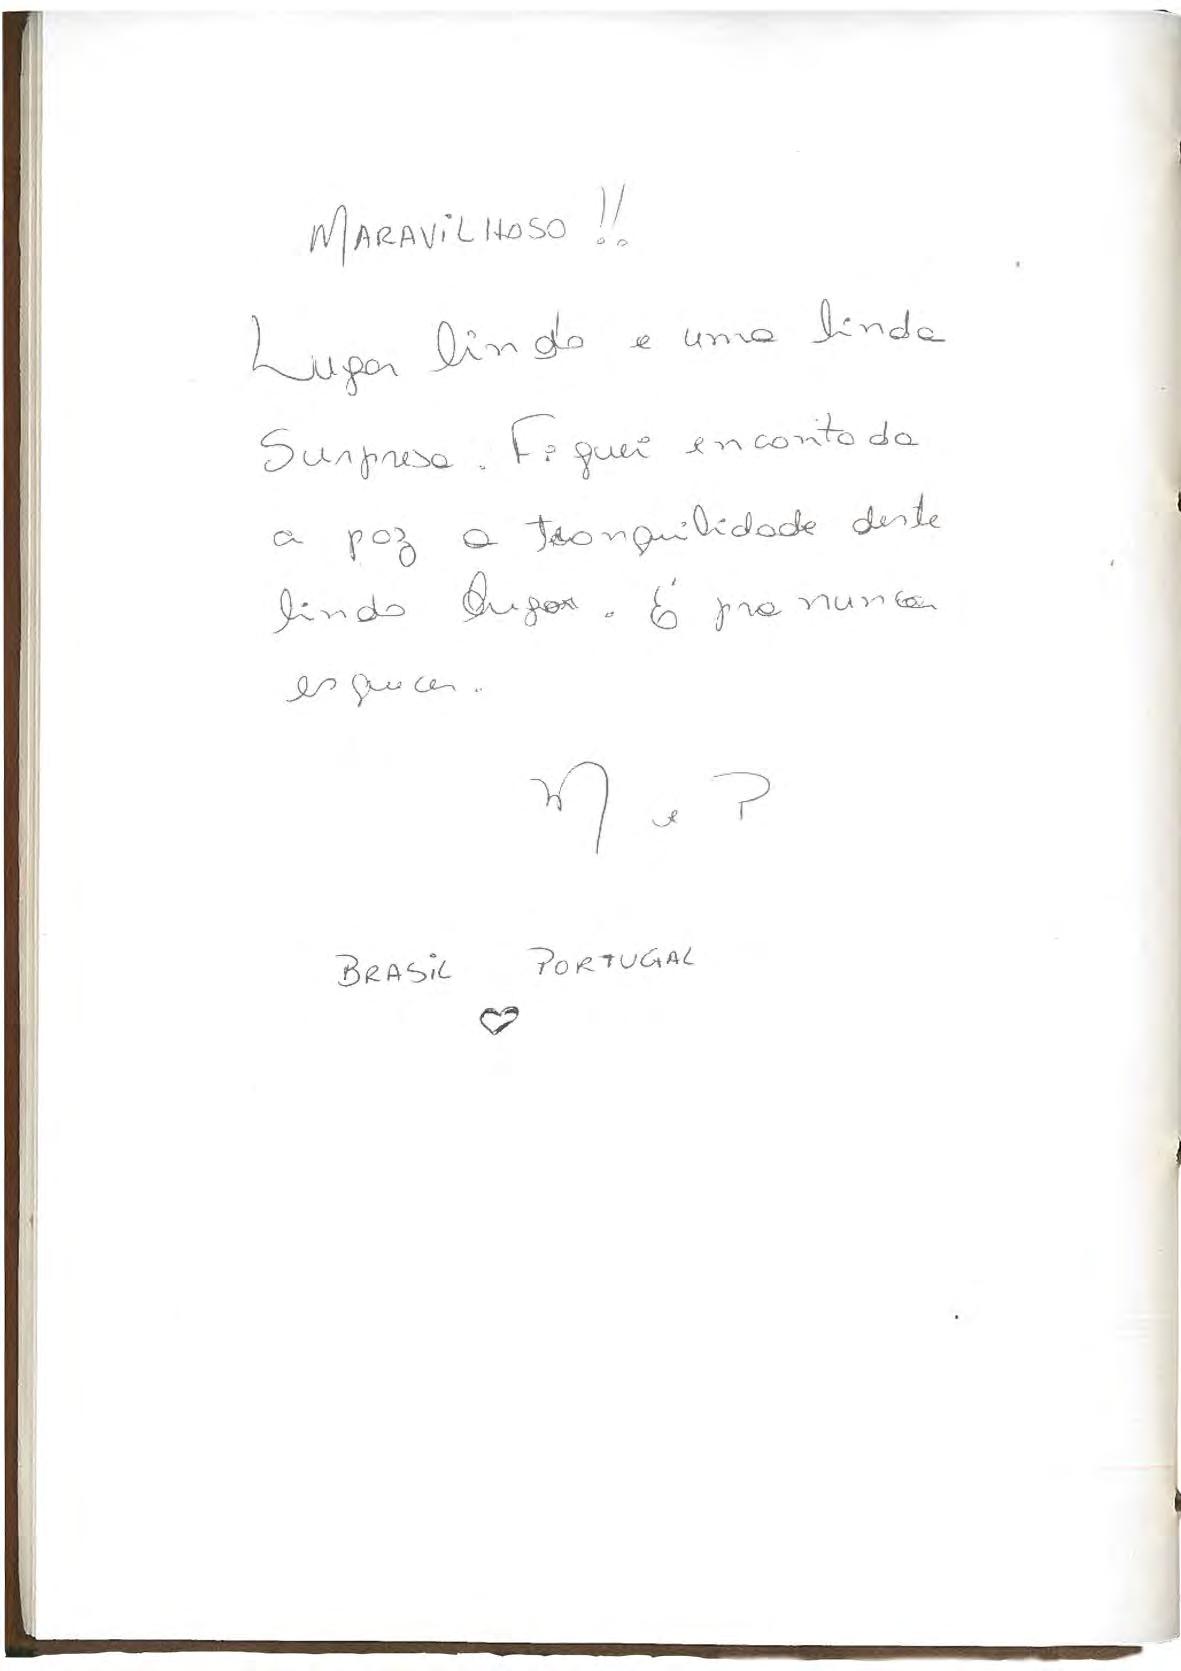 MARAVILHOSO !!
Lugar lindo e uma linda
Surpresa. Fiquei encantada
a paz a tranquilidade deste
lindo lugar. É pra nunca
esquecer.
M e P
BRASIL PORTUGAL